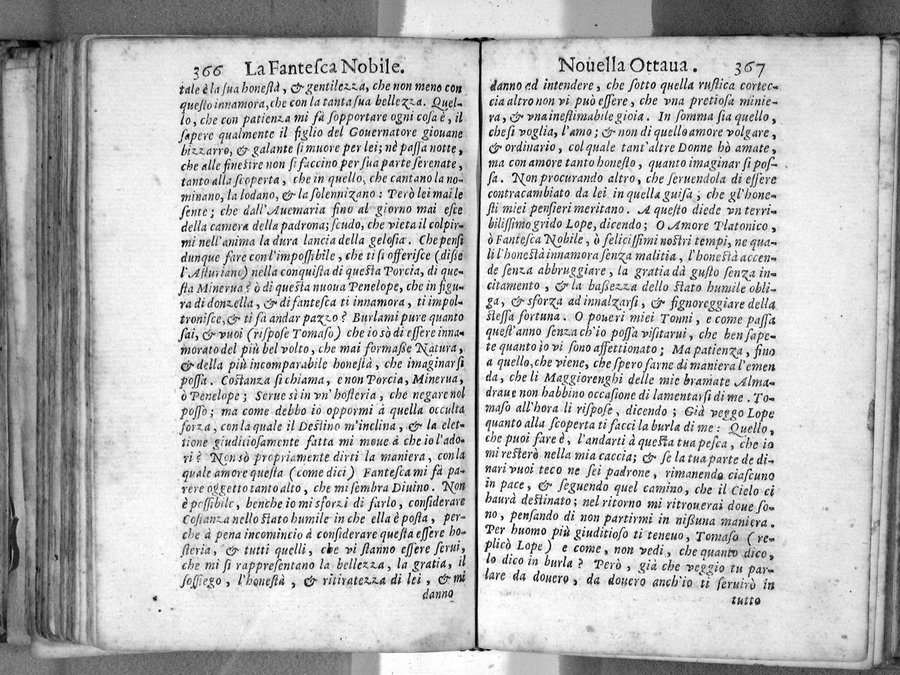 366 La Fantesca Nobile.
tale è la sua honestà, & gentilezza, che non meno con
questo innamora, che con la tanta sua bellezza. Quel-
lo, che con patienza mi fà sopportare ogni cosa è, il
sapere qualmente il figlio del Gouernatore giouane
bizzarro, & galante si muore per lei; nè passa notte,
che alle finestre non si faccino per sua parte serenate,
tanto alla scoperta, che in quello, che cantano la no-
minano, la lodano, & la solennizano: Però lei mai le
sente; che dall'Auemaria fino al giorno mai esce
della camera della padrona; scudo, che vieta il colpir-
mi nell'anima la dura lancia della gelosia. Che pensi
dunque fare con l'impossibile, che ti si offerisce (disse
l'Asturiano) nella conquista di questa Porcia, di que-
sta Minerua? ò di questa nuoua Penelope, che in figu-
ra di donzella, & di fantesca ti innamora, ti impol-
tronisce, & ti fà andar pazzo? Burlami pure quanto
sai, & vuoi (rispose Tomaso) che io sò di essere inna-
morato del più bel volto, che mai formasse Natura,
& della più incomparabile honestà, che imaginarsi
possa. Costanza si chiama, e non Porcia, Minerua,
ò Penelope; Serue sì in vn'hosteria, che negare nol
posso; ma come debbo io oppormi à quella occulta
forza, con la quale il Destino m'inclina, & la elet-
tione giuditiosamente fatta mi moue à che io l'ado-
ri? Non sò propriamente dirti la maniera, con la
quale amore questa (come dici) Fantesca mi fà pa-
rere oggetto tanto alto, che mi sembra Diuino. Non
è possibile, benche io mi sforzi di farlo, considerare
Costanza nello stato humile in che ella è posta, per-
che à pena incomincio à considerare questa essere ho-
steria, & tutti quelli, che vi stanno essere serui,
che mi si rappresentano la bellezza, la gratia, il
sossiego, l'honestà, & ritiratezza di lei, & mi
danno
Nouella Ottaua. 367
danno ad intendere, che sotto quella rustica cortec-
cia altro non vi può essere, che vna pretiosa minie-
ra, & vna inestimabile gioia. In somma sia quello,
che si voglia, l'amo; & non di quello amore volgare,
& ordinario, col quale tant'altre Donne hò amate,
ma con amore tanto honesto, quanto imaginar si pos-
sa. Non procurando altro, che seruendola di essere
contracambiato da lei in quella guisa, che gl'hone-
sti miei pensieri meritano. A questo diede vn terri-
bilissimo grido Lope, dicendo; O Amore Platonico,
ò Fantesca Nobile, ò felicissimi nostri tempi, ne qua-
li l'honestà innamora senza malitia, l'honestà accen-
de senza abbruggiare, la gratia dà gusto senza in-
citamento, & la bassezza dello stato humile obli-
ga, & sforza ad innalzarsi, & signoreggiare della
stessa fortuna. O poueri miei Tonni, e come passa
quest'anno senza ch'io possa visitarui, che ben sape-
te quanto io vi sono affettionato; Ma patienza, fino
a quello, che viene, che spero farne di maniera l'emen
da, che li Maggiorenghi delle mie bramate Alma-
draue non habbino occasione di lamentarsi di me. To-
maso all'hora li rispose, dicendo; Già veggo Lope
quanto alla scoperta ti facci la burla di me: Quello,
che puoi fare è, l'andarti à questa tua pesca, che io
mi resterò nella mia caccia; & se la tua parte de di-
nari vuoi teco ne sei padrone, rimanendo ciascuno
in pace, & seguendo quel camino, che il Cielo ci
haurà destinato; nel ritorno mi ritrouerai doue so-
no, pensando di non partirmi in nissuna maniera.
Per huomo più giuditioso ti teneuo, Tomaso (re-
plicò Lope) e come, non vedi, che quanto dico,
lo dico in burla? Però, già che veggio tu par-
lare da douero, da douero anch'io ti seruirò in
tutto